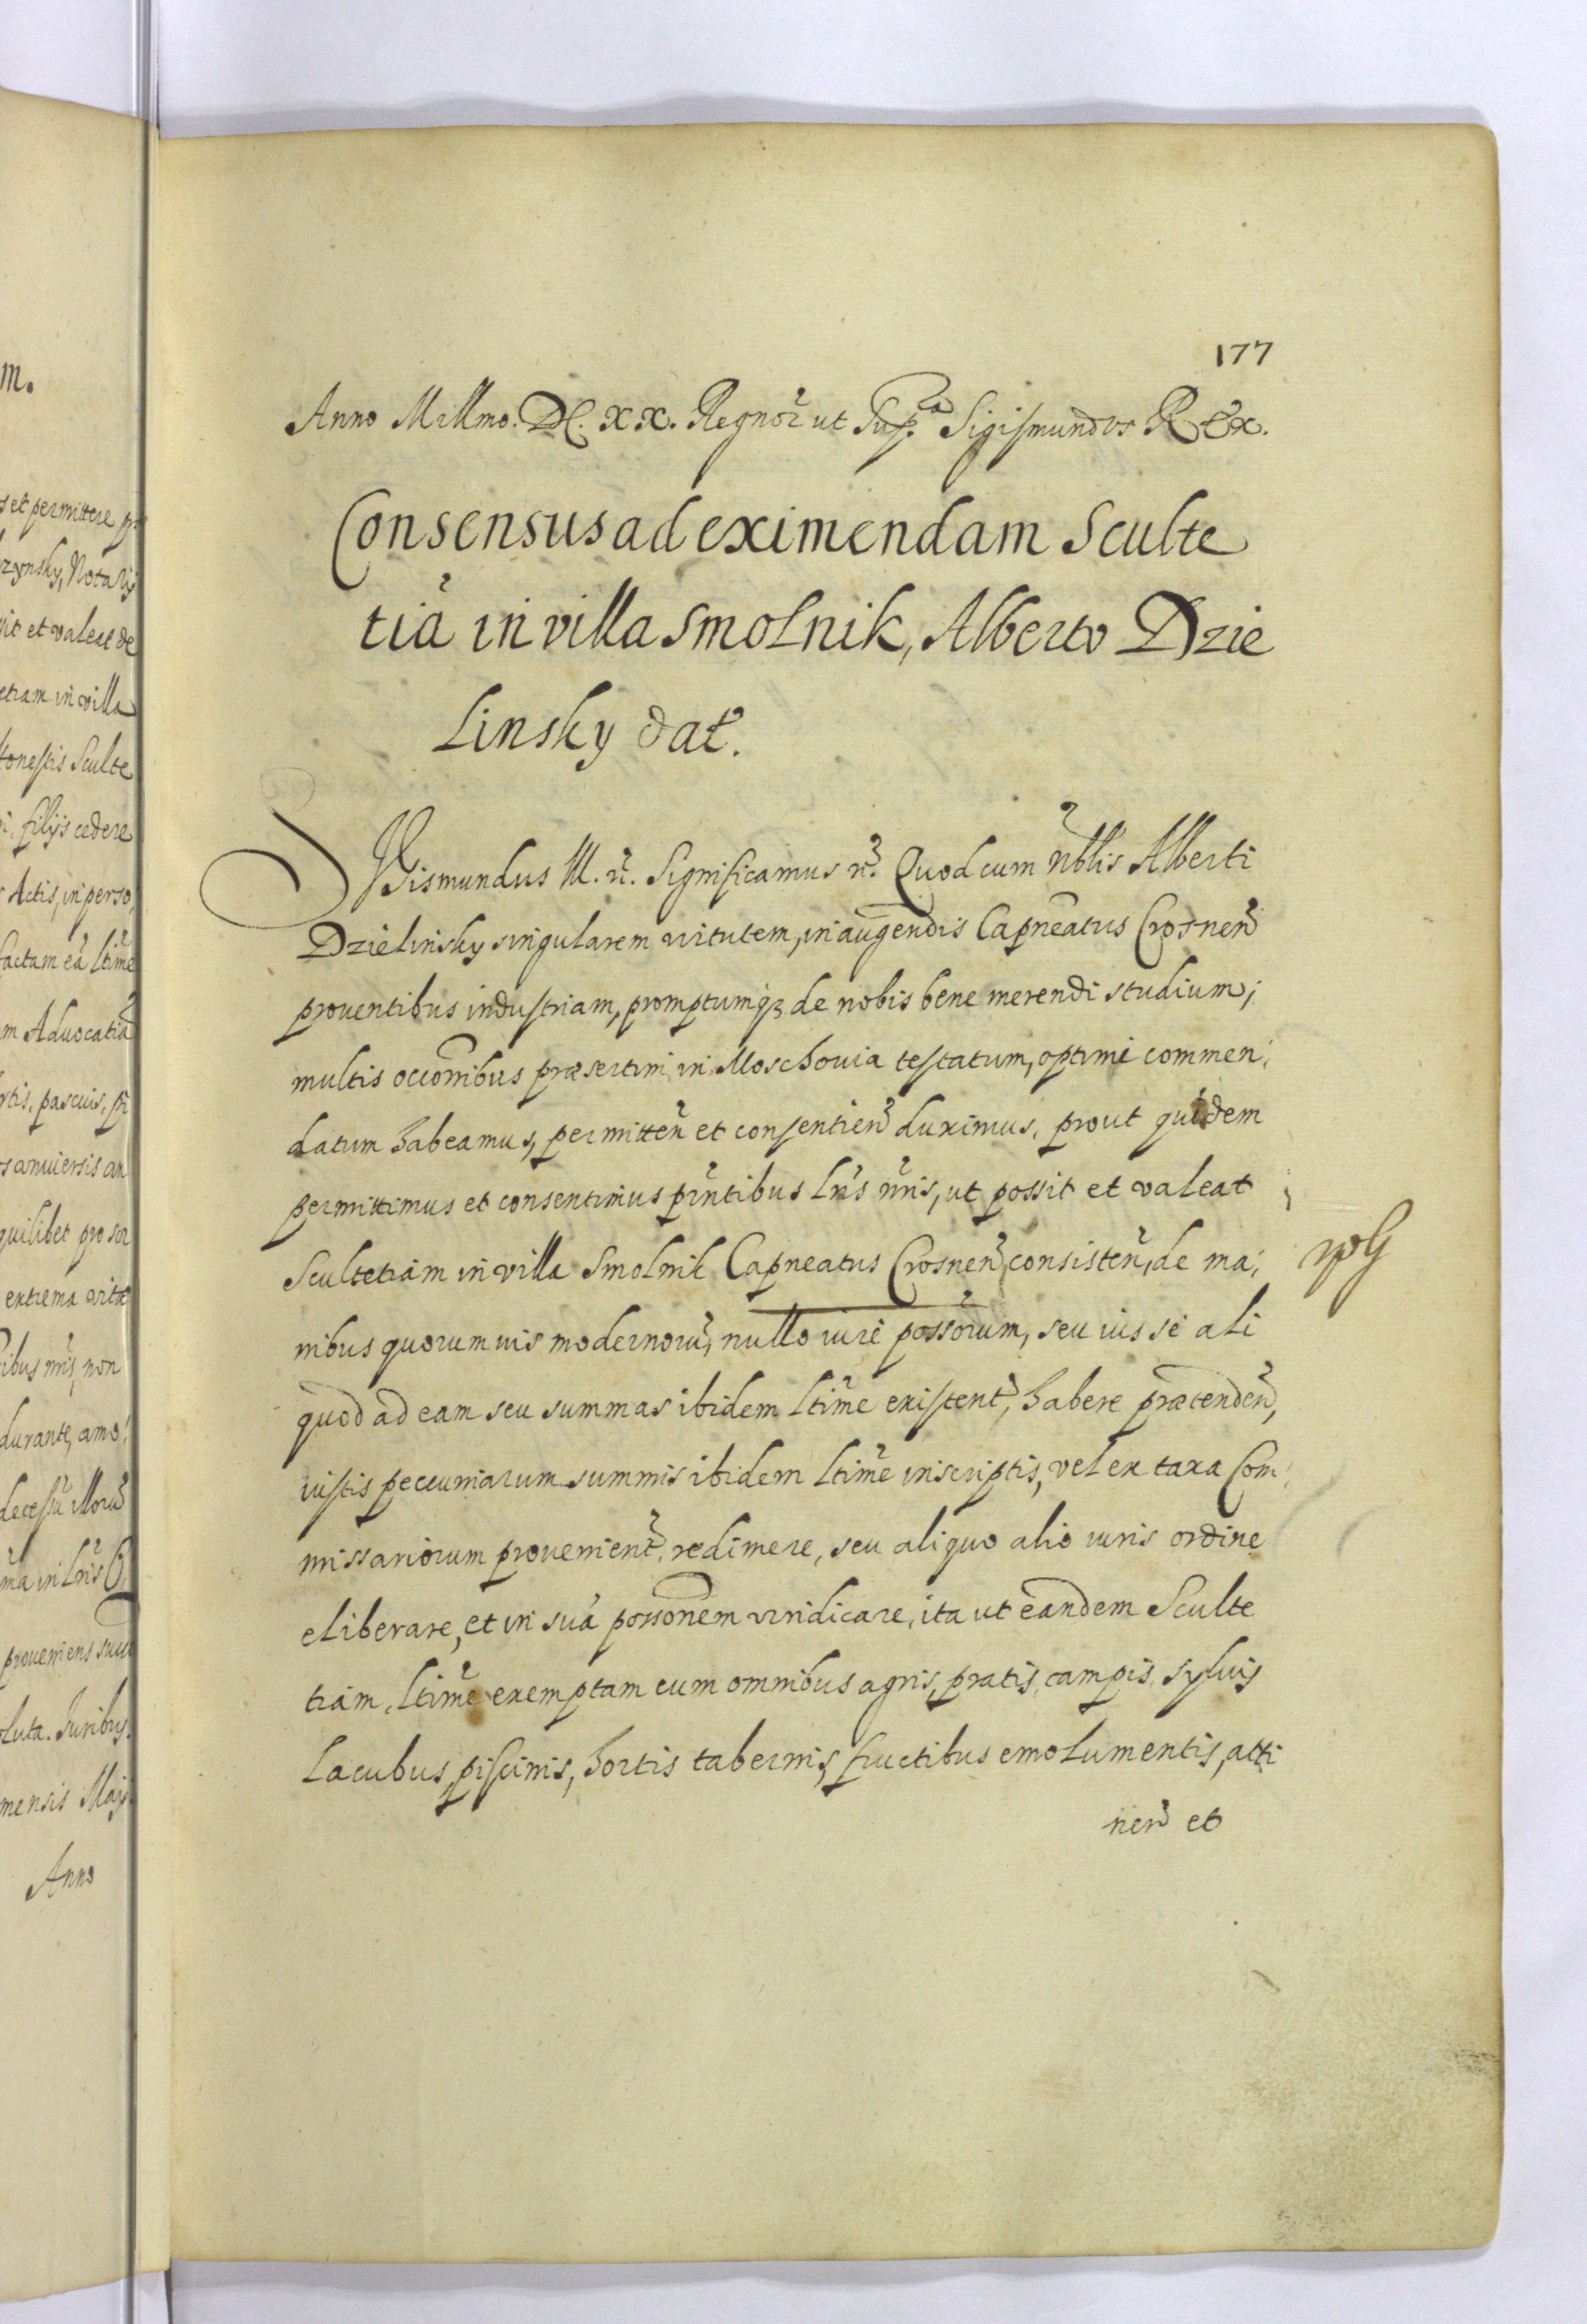 m.
s et permittere
zynsky, Notarij
sit et valeat de
etiam in villa
honestis Sculte
filijs cedere
Actis, in perso,
factam eã ltime
m Advocatiã
rtis, pascuis,
s anniversis an
quilibet pro
extrema vitæ
ibus nris, non
durante, amo:
decessũ illorũ
ma in Lris
proveniens
luta. Iuribus
mensis Maij
Anno
177
Anno Millmo. DC. XX. Regnor ut Supa Sigismundus Rex.
Consensus ad eximendam Sculte
tiã in villa Smolnik, Alberto Dzie
linsky dat.
Sigismundus III. r̃. Significamus r̃. Quod cum nblis Alberti
Dzielinsky singularem virtutem, in augendis Capneatus Crosneñ
proventibus industriam, promptumq3 de nobis bene merendi studium;
multis occonibus præsertim in Moschouia testatum, optime commen:
datum habeamus, permitteñ et consentieñ duximus, prout quidem
permittimus et consentimus pñtibus Lr̃is nr̃is, ut possit et valeat
Scultetiam in villa Smolnik Capneatus Crosneñ consisteñ, de ma:
nibus quorumuis modernorũ, nullo iure possorum, seu ius se ali
quod ad eam seu summas ibidem ltime existent, habere prætendeñ,
iustis peccuniarum summis ibidem ltime inscriptis, vel ex taxa Com:
missariorum provenient, redimere, seu aliquo alio iuris ordine
eliberare, et in suã possonem vindicare, ita ut eandem Sculte
tiam, ltime exemptam cum omnibus agris, pratis, campis, sylvis
Lacubus, piscinis, hortis tabernis, fructibus emolumentis, atti
neñ et